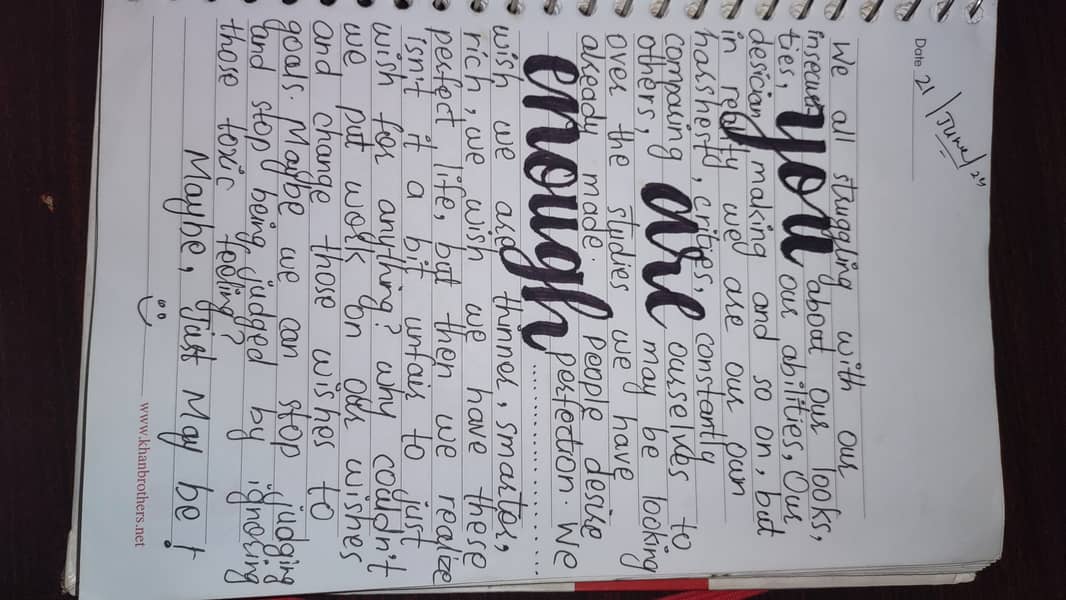 Date 21/June/24
We all struggling with our
insecuri about our looks,
ties, you our abilities, Our
desician making and so on, but
in reality we are our own
harsshest, critics, constantly
comparing are ourselves to
others, may be looking
over the studies we have
already made. People desire
enough perfection. We
..........................
wish we are thinner, smarter,
rich, we wish we have these
perfect life, but then we realize
isn't it a bit unfair to just
wish for anything? why couldn't
we put work on our wishes
and change those wishes to
goals. Maybe we can stop judging
and stop being judged by ignoring
those toxic feeling?
Maybe, Just May be!
www.khanbrothers.net